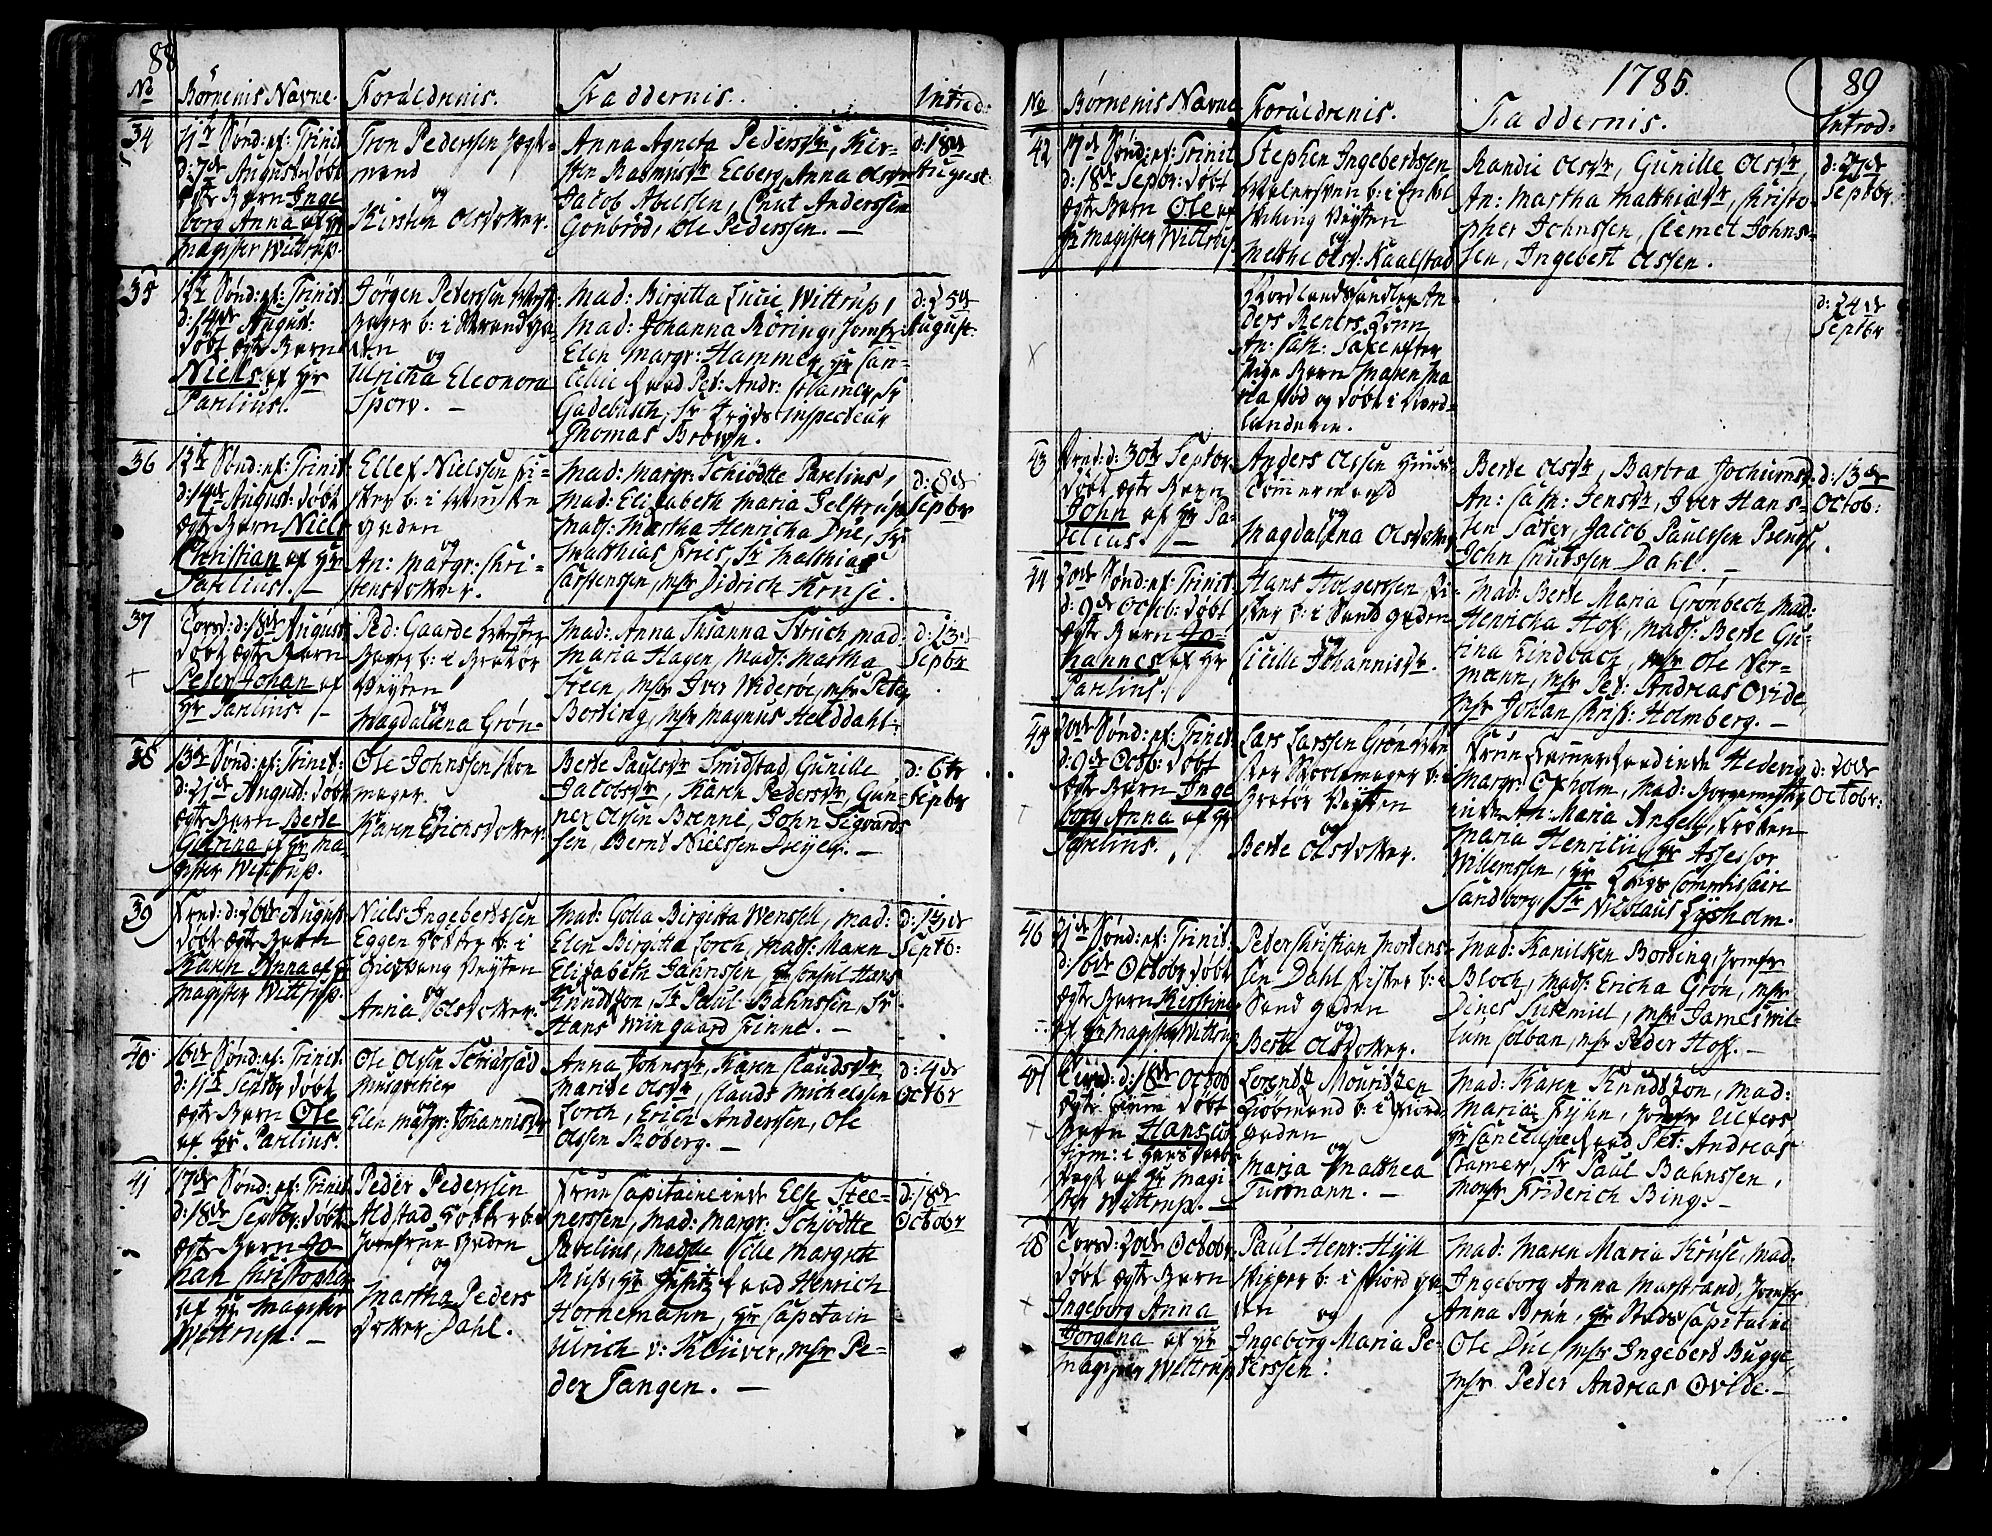 88
No
Børnenis Navne.
Forældrenis.
Faddernis.
Introd:
34
11te Sønd: ef: Trinit
d: 7de August døbt
ægte Barn Inge
borg Anna af Hr
Magister Wittrup.
Tron Pederssen
mand
og
Kirsten Olsdotter.
Anna Agneta Pedersdr, Kir-
sten Rasmusdr Elberg, Anna Olsdr
Jacob Povelssen, Cnut Anderssen
Gonbrød, Ole Pederssen. —
d: 18de
August
35
12te Sønd: ef: Trinit:
d: 14de August:
døbt ægte Barn
Niels af Hr
Parelius.
Jørgen Peterssen
b: i Strand ga-
den
og
Ulricha Eleonora
Sporv. —
Mad: Birgitta Lucie Wittrup,
Mad: Johanna Röring, Jomfr
Elen Margr: Hammer, Hr Can-
cellie Raad Pet: Andr: Cramer, Sr
Gadebusch, Sr Inspecteur
Thomas Brown.
d: 25de
August.
36
12te Sønd: ef: Trinit
d: 14de August: døbt
ægte Barn Niels
Christian af Hr
Parelius. —
Ellef Nielssen Fi-
sker b: i
gaden
og
An: Margr: Chri-
stensdotter.
Mad: Margr: Schiødtte Parelius,
Mad: Elisabeth Maria Gelstrup
Mads: Martha Henricha Due, Sr
Matthias Friis, Sr Matthias
Carstenssen, Msr Didrich Kruse.
d: 8de
Septbr
37
Torsd: d: 18de August
døbt ægte Barn
Peter Johan af
Hr Parelius. —
Ped: Gaarde
b: i Bratør
Veyten
og
Magdalena Grøn-
Mad: Anna Susanna Struch, Mad:
Maria Hagen, Mads: Martha
Steen, Msr Iver Widerøe, Msr Peter
Borting, Msr Magnus Helddahl.
d: 23de
Septbr
38
13de Sønd: ef: Trinit:
d: 21de August: døbt
ægte Barn Berte
Gurina af Hr Ma-
gister Wittrup.
Ole Johnssen Skoe
mager.
og
Karen Erichsdotter.
Berte Paulsdr Smidstad, Gunille
Jacobsdr, Karen Pedersdr, Gun-
ner Olssen Brenne, John Sigvards
sen, Bernt Nielssen —
d: 6te
Septbr
39
Fred: d: 26de August
døbt ægte Barn
Karen Anna af Hr
Magister Wittrup.
Niels Ingebertssen
Eggen b: i
Veyten
og
Anna Olsdotter.
Mad: Golla Birgitta Wensell, Mad:
Elen Birgitta Lorch, Mads: Maren
Elisabeth Gahrssen, Hr Consul Hans
Knudtzon, Sr Paul Bahnssen, Sr
Hans Wiingaard Finne. —
d: 14de
Septb:
40
16de Sønd: ef: Trinit:
d: 11te Septbr døbt
ægte Barn Ole
af Hr Parelius.
Ole Olssen
Musqvetier
og
Elen Margr: Johannisdr
Anna Johnsdr, Karen Claudsdr,
Marite Olsdr, Clauds Michelssen
Lorch, Erich Anderssen, Ole
Olssen Røberg. —
d: 4de
Octbr
41
17de Sønd: ef: Trinit
d: 18de Septbr: døbt
ægte Barn Jo-
han Christopher
af Hr Magister
Wittrup. —
Peder Pederssen
Aldstad b: i
Jomfrue Gaden
og
Martha Peders
dotter Dahl.
Frue Capitaineinde Else Stee-
nerssen, Mad: Margr: Schjødtte
Parelius, Madselle Margrete
Huss, Hr Justitz Raad Henrich
Hornemann, Hr Capitain
Ulrich v: Klüver, Msr Pe-
der Tangen. —
d: 18de
October
1785
89
No
Børnenis Navne
Forældrenis.
Faddernis.
Introd:
42
17de Sønd: ef: Trinit
d: 18de Septbr: døbt
ægte Barn Ole af
Hr Magister Wittrup.
Stephen Ingebertssen
b: i Enkel
Veyten
og
Mette Olsd: Kaalstad
Randie Olsdr, Gunille Olsdr,
An: Martha Matthiasdr, Christo-
pher Johnssen, Clemet Johns-
sen, Ingebert Olssen.
d: 27de
Septbr.
Anders
An: Cath:
Barn Maren Ma
ria fød og døbt i Nord-
landene.
d: 24de
Septbr
43
Fred: d: 30te Septbr
døbt ægte Barn
John af Hr Pa-
relius. —
Anders Olssen Huus
Tømmermand
og
Magdalena Olsdotter
Berte Olsdr, Barbra Jochumsd:
An: Cath: Jensdr, Iver Hans-
sen Sater, Jacob Paulssen
John Cnutssen Dahl. —
d: 13de
Octob:
44
20de Sønd: ef: Trinit
d: 9de Octob: døbt
ægte Barn Jo-
hannes af Hr
Parelius.
Hans Holgerssen Fi-
sker b: i Sand gaden
og
Cicille Johannisdr.
Mad: Berte Maria Grønbech, Mad:
Henricha Hof, Mads: Berte Gu-
rina Lindbach, Msr Ole Nor-
mann, Msr Pet: Andreas Ovide,
Msr Johan Christ: Holmberg. —
45
20de Sønd: ef: Trinit:
d: 9de Octb: døbt
ægte Barn Inge
borg Anna af Hr
Parelius.
Lars Larssen Grøn
b: i
Bratør Veyten
og
Berte Olsdotter.
Frue Kammerraadinde Hedevig
Margr: Oxholm, Mad: Borgermester
inde An: Maria Angell, Frøken
Maria Henrilii, Hr Assessor
Willemssen, Hr Krigs Commissaire
Sandborg, Sr Nicolaus Lysholm.
d: 20de
Octobr:
46
21de Sønd: ef: Trinit:
d: 16de Octobr døbt
ægte Barn Kirstine
af Hr Magister Wittrup
Peder Christian Mortens-
sen Dahl Fisker b: i
Sand gaden
og
Berte Olsdotter.
Mad: Kanilken Borting, Jomfr
Bloch, Mads: Ericha Grøn, Msr
Dines Susemiel, Msr James Wil-
lum Colban, Msr Peder Hof. —
47
Tirsd: d: 18de Octob
ægte hiem døbt
Barn Hans
hiem: i
af Hr Magi-
ster Wittrup. —
Lorentz Mouritzen
Kiøbmand b: i Fiord
gaden
og
Maria Matthea
Turmann. —
Mad: Karen Knudtzon, Mad:
Maria Fyhn, Jomfr Ulfers
Hr Cancellie Raad Pet: Andreas
Cramer, Sr Paul Bahnssen,
Monsr Friderich Bing. —
48
Torsd: 20de Octobr
døbt ægte Barn
Ingeborg Anna
Jorgina af Hr
Magister Wittrup
Paul Henr: Hÿll
Skipper b: i Fiord ga-
den
og
Ingeborg Maria Pe-
terssen.
Mad: Maren Maria Kruse, Mad:
Ingeborg Anna Marstrand, Jomfr
Anna Brun, Hr Stads Capitaine
Ole Due, Msr Ingebert Bugge,
Msr Peder Andreas Ovide. —